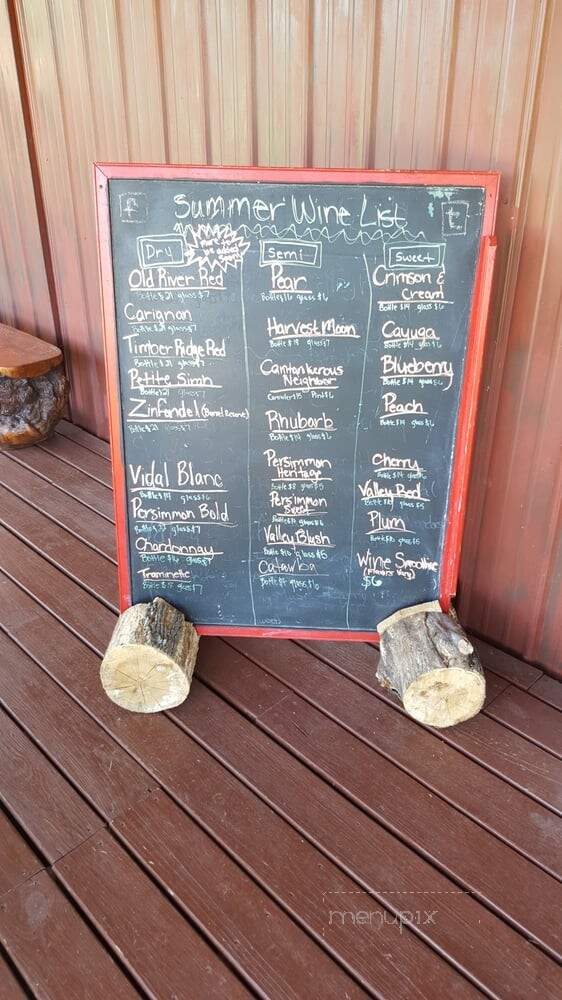 f
Summer Wine List
t
Dry
More to be added soon!
Old River Red
Bottle $21 glass $7
Carignan
Bottle $21 glass $7
Timber Ridge Red
Bottle $21 glass $7
Petite Sirah
Bottle $21 glass $7
Zinfandel (Barrel Reserve)
Bottle glass $7
Vidal Blanc
Bottle $14 glass $6
Persimmon Bold
Bottle glass $7
Chardonnay
Bottle $16 glass $7
Traminette
Bottle glass $7
Semi
Pear
Bottle $16 glass $6
Harvest Moon
Bottle $18 glass $7
Cantankerous
Neighbor
Pint $6
Rhubarb
Bottle $14 glass $6
Persimmon
Heritage
Bottle $8 glass $5
Persimmon
Sweet
Bottle glass $6
Valley Blush
Bottle $10 glass $5
Catawba
Bottle glass $6
Sweet
Crimson &
Cream
Bottle $14 glass $6
Cayuga
Bottle $14 glass $6
Blueberry
Bottle $14 glass $6
Peach
Bottle $14 glass $6
Cherry
Bottle $14 glass $6
Valley Red
Bottle $10 glass $5
Plum
Bottle glass $5
Wine Smoothie
(flavors vary)
$6
menupix